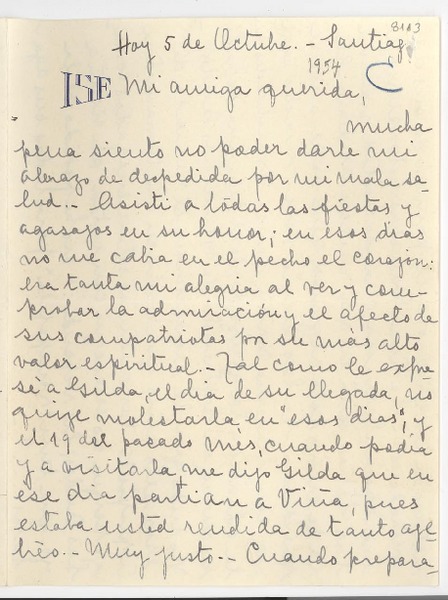 8183
Hoy 5 de Octubre. - Santiago
1954
ISE Mi amiga querida,
mucha
pena siento no poder darle mi
abrazo de despedida por mi mala sa-
lud.- Asistí a todas las fiestas y
agasajos en su honor; en esos días
no me cabía en el pecho el corazón:
era tanta mi alegría al ver y com-
probar la admiración y el afecto de
sus compatriotas por su más alto
valor espiritual.- Tal como le expre-
sé a Gilda, el día de su llegada, no
quize molestarla, en "esos días", y
el 19 del pacado mes, cuando podía
ya visitarla, me dijo Gilda que en
ese día partían a Viña, pues
estaba usted rendida de tanto aje-
treo.- Muy justo.- Cuando prepara-